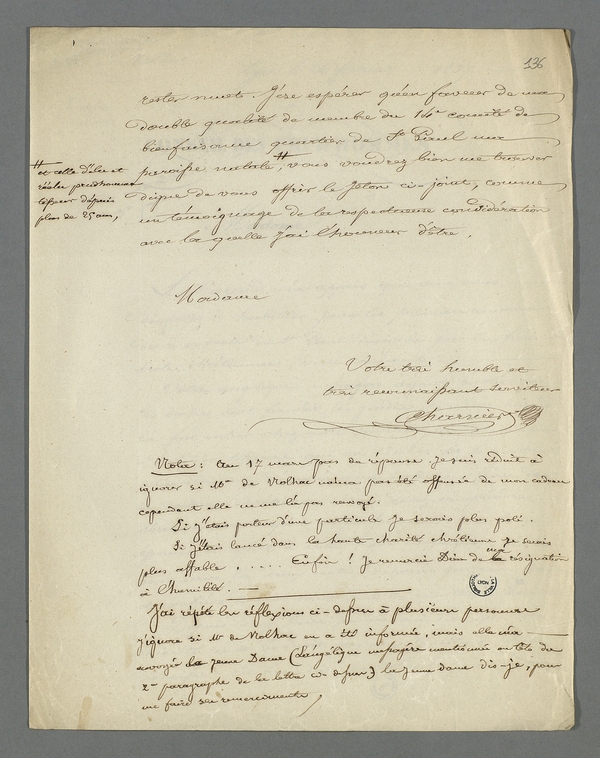 136
rester muet. J'ose espérer qu'en faveur de ma
double qualité de membre du 14e comité de
bienfaisance quartier de St Paul ma
paroisse natale,# vous voudrez bien me trouver
digne de vous offrir le Jeton ci-joint, comme
un témoignage de la respectueuse considération
avec la quelle j'ai l'honneur d'être,
# et celle d'élu et
réélu prudhomme
tisseur depuis
plus de 25 ans,
Madame
Votre très humble et
très reconnaissant serviteur
Charnier
Nota : Au 17 mars pas de réponse. Je suis réduit à
ignorer si Me de Nolhac n'aura pas été offensée de mon cadeau
cependant elle ne me l'a pas renvoyé.
Si j'étais porteur d'une particule je serais plus poli.
Si j'étais lancé dans la haute charité chrétienne je serais
plus affable ..... Enfin ! Je remercie Dieu de ma résignation
à l'humilité.
J'ai répété les réflexions ci-dessus à plusieurs personnes
j'ignore si Me de Nolhac en a été informée, mais elle m'a
envoyé la jeune Dame (L'angélique messagère mentionnée en tête du
2me paragraphe de la lettre ci-dessus) la jeune dame dis-je, pour
me faire ses remerciements,